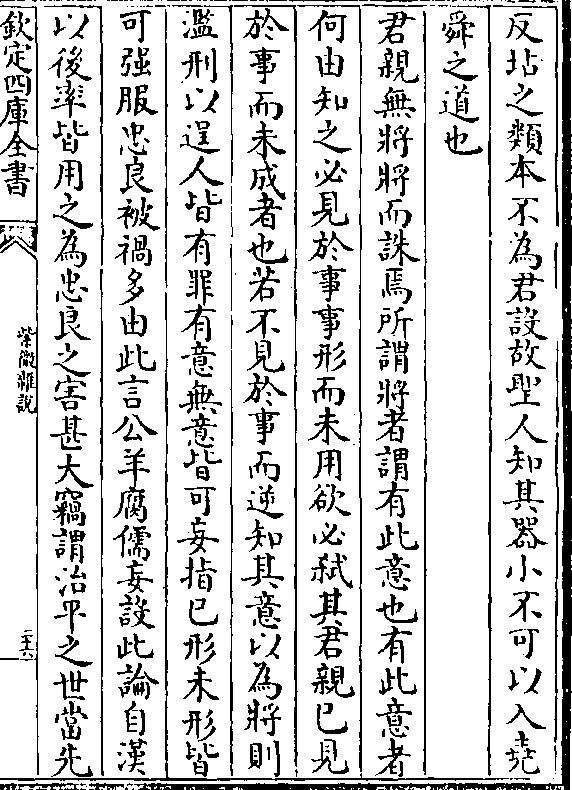 反坫之類本不為君設故聖人知其器小不可以入堯
舜之道也
君親無將將而誅焉所謂將者謂有此意也有此意者
何由知之必見於事事形而未用欲必弑其君親已見
於事而未成者也若不見於事而逆知其意以為將則
濫刑以逞人皆有罪有意無意皆可妄指已形未形皆
可强服忠良被禍多由此言公羊腐儒妄設此論自漢
以後率皆用之為忠良之害甚大竊謂治平之世當先
欽定四庫全書
紫微雜說
二十六